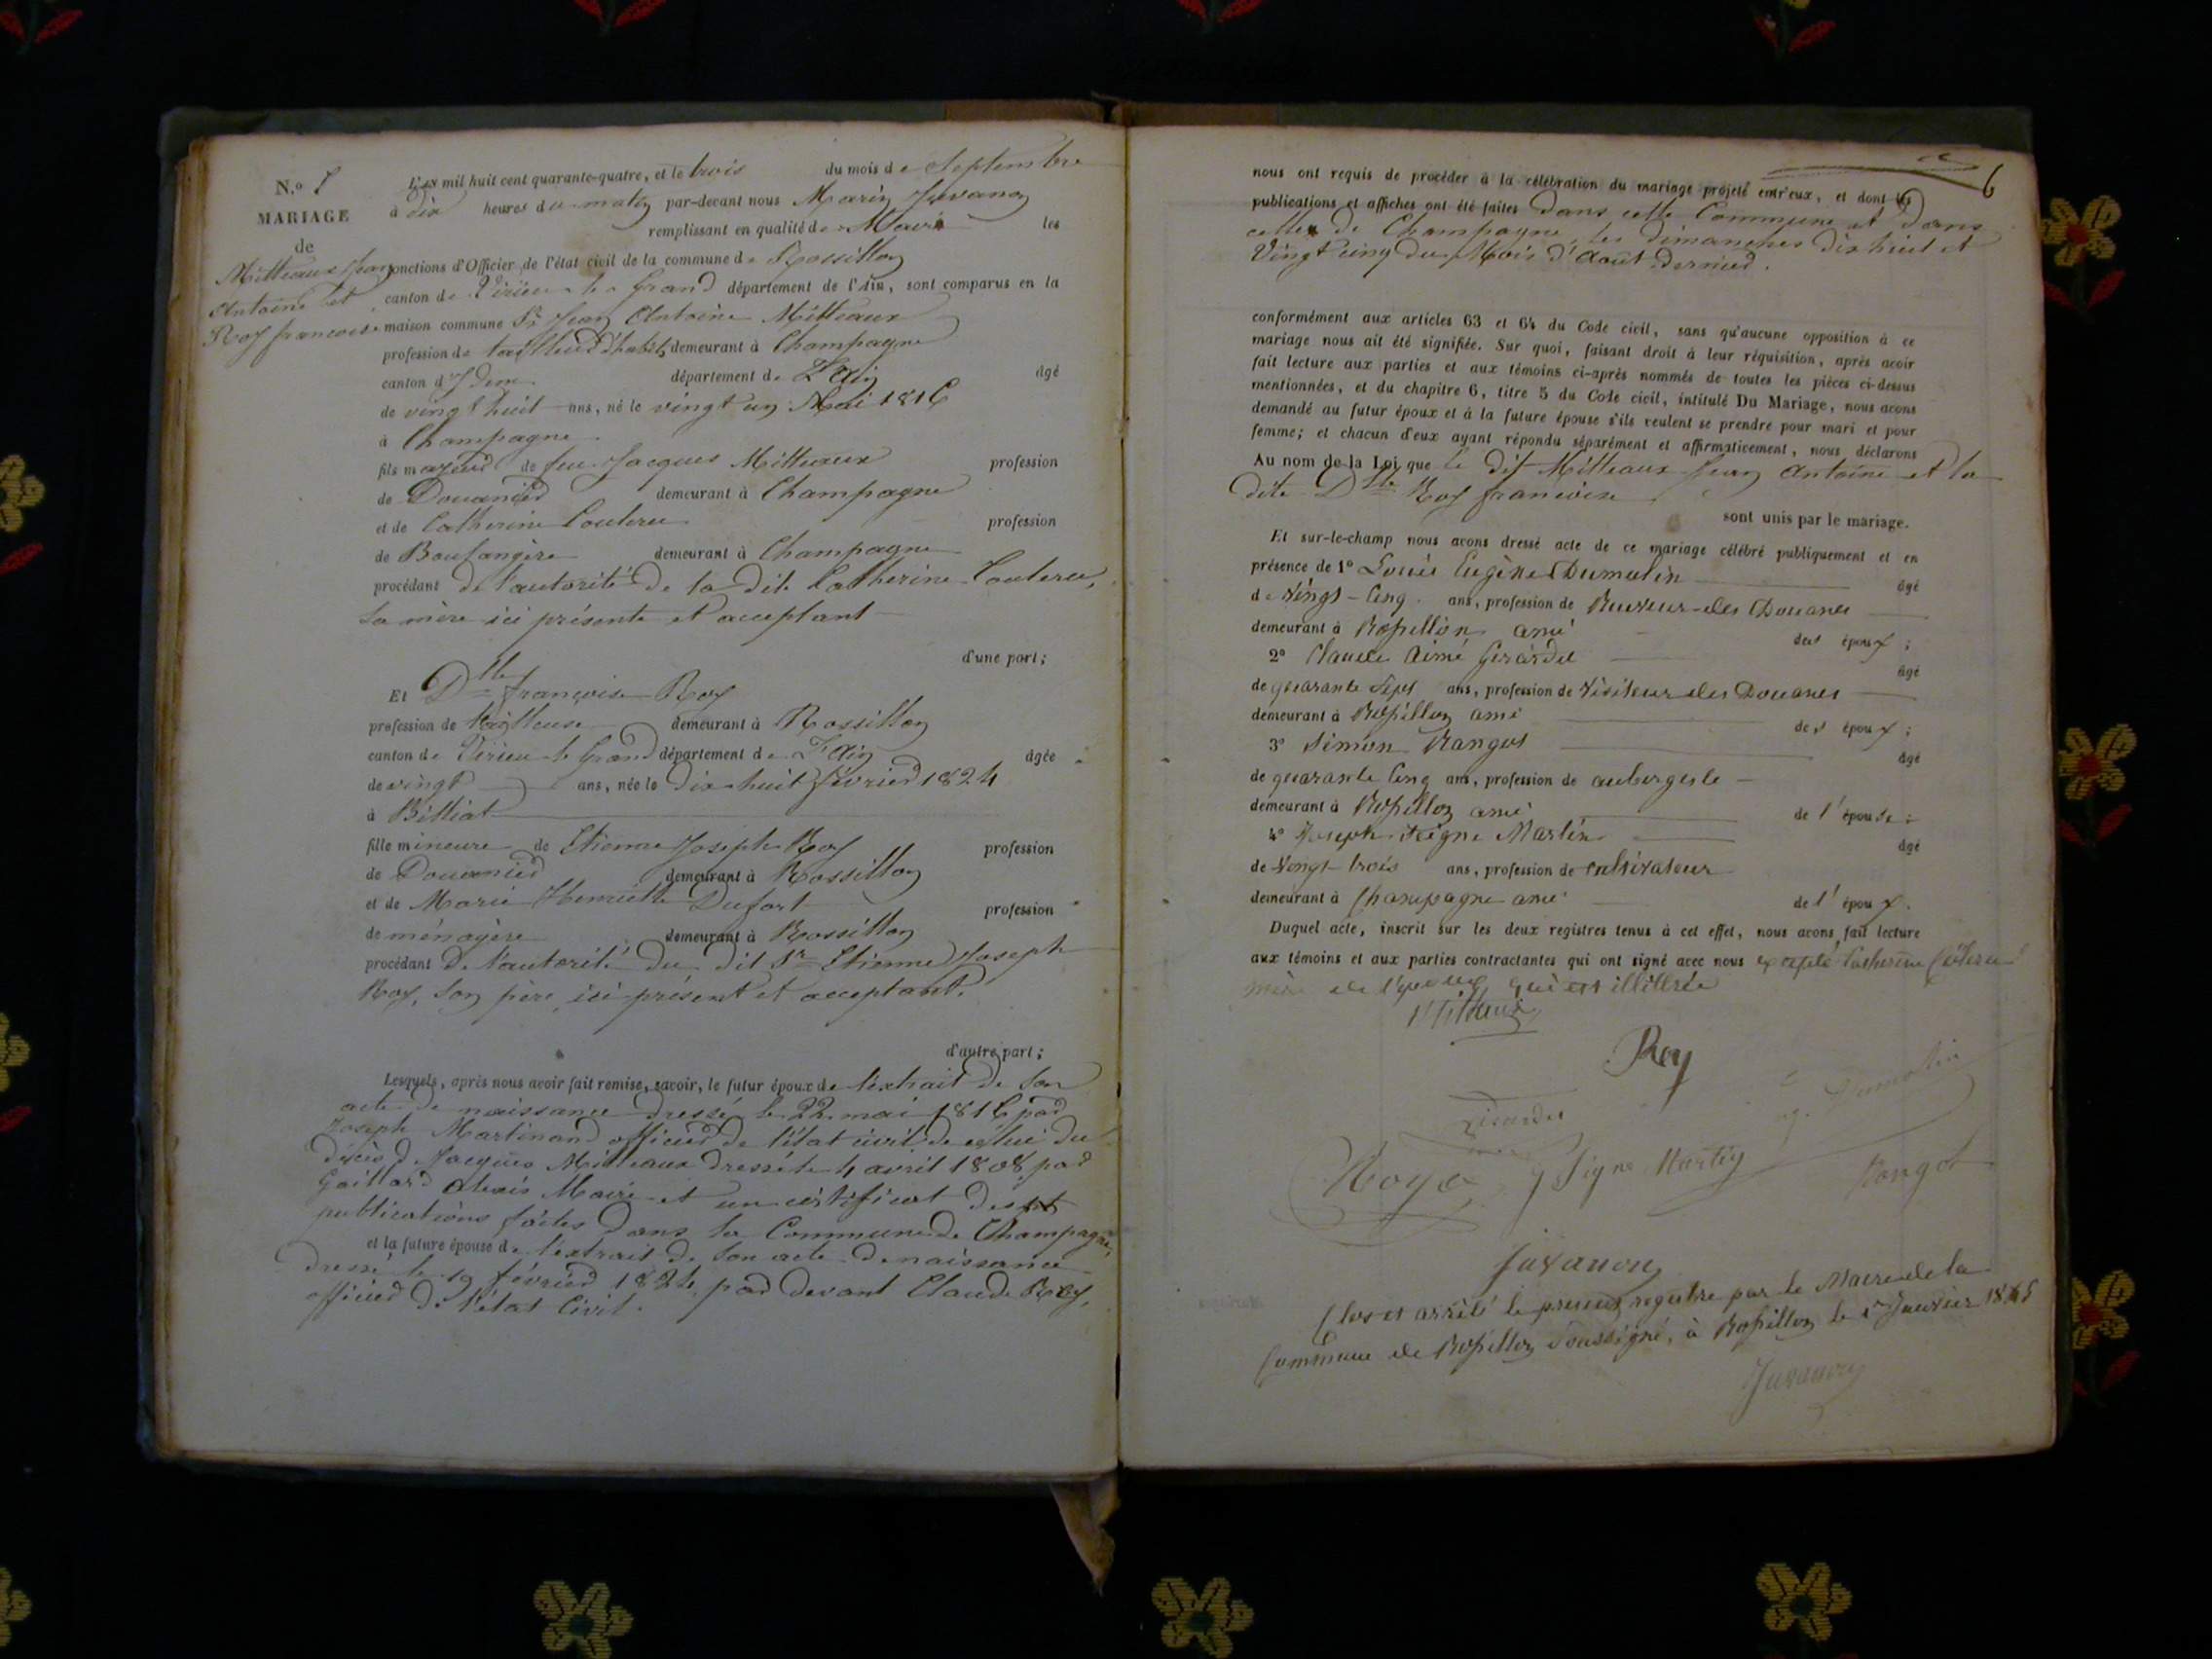 N.º
MARIAGE
de
Mitteaux Jean
Antoine et
Roy françoise
L'AN mil huit cent quarante-quatre, et le trois du mois de Septembre
à dix heures du matin par-devant nous Marin Juvanon
remplissant en qualité de Maire les
fonctions d'Officier de l'état civil de la commune de Rossillon
canton de Virieu le Grand département de l'Ain, sont comparus en la
maison commune Sr Jean Antoine Mitteaux
profession de tailleur d'habits demeurant à Champagne
canton d'Idem département de L'Ain âgé
de vingt huit ans, né le vingt un Mai 1816
à Champagne
fils majeur de feu Jacques Mitteaux profession
de Douanier demeurant à Champagne
et de Catherine profession
de Boulangère demeurant à Champagne
procédant de l'autorité de la dite Catherine
sa mère ici présente et acceptant
d'une part;
Et Dlle françoise Roy
profession de tailleuse demeurant à Rossillon
canton de Virieu le Grand département de L'Ain âgée
de vingt ans, née le dix huit février 1824
à Billiat
fille mineure de Etienne Joseph Roy profession
de Douanier demeurant à Rossillon
et de Marie Henriette Dufort profession
de ménagère demeurant à Rossillon
procédant de l'autorité du dit Sr Etienne Joseph
Roy, son père, ici présent et acceptant.
d'autre part;
Lesquels, après nous avoir fait remise, savoir, le futur époux de l'extrait de son
acte de naissance dressé le 22 mai 1816 par
Joseph Martinand officier de l'état civil de celui du
décès d Jacques Mitteaux dressé le 4 avril 1808 par
Gaillard Alexis Maire et un certificat des
publications faites dans la Commune de Champagne,
et la future épouse de l'extrait de son acte de naissance
dressé le 19 février 1824 par devant Claude Roy,
officier de l'état Civil.
6
nous ont requis de procéder à la célébration du mariage projeté entr'eux, et dont les
publications et affiches ont été faites dans cette Commune et dans
celle de Champagne, les dimanches dix huit et
Vingt cinq du Mois d'Août dernier.
conformément aux articles 63 et 64 du Code civil, sans qu'aucune opposition à ce
mariage nous ait été signifiée. Sur quoi, faisant droit à leur réquisition, après avoir
fait lecture aux parties et aux témoins ci-après nommés de toutes les pièces ci-dessus
mentionnées, et du chapitre 6, titre 5 du Code civil, intitulé Du Mariage, nous avons
demandé au futur époux et à la future épouse s'ils veulent se prendre pour mari et pour
femme; et chacun d'eux ayant répondu séparément et affirmativement, nous déclarons
Au nom de la Loi que le dit Mitteaux Jean Antoine et la
dite Dlle Roy francoise
sont unis par le mariage.
Et sur-le-champ nous avons dressé acte de ce mariage célébré publiquement et en
présence de 1º Louis Eugène Dumulin âgé
de Vingt-Cinq ans, profession de Receveur des Douanes
demeurant à Rossillon ami des époux;
2º Claude Aimé Girardet âgé
de quarante Sept ans, profession de Visiteur des Douanes
demeurant à Rossillon ami des époux;
3º Simon Rangot âgé
de quarante Cinq ans, profession de aubergiste
demeurant à Rossillon ami de l'épouse;
4º Joseph Martin âgé
de Vingt-trois ans, profession de cultivateur
demeurant à Champagne ami de l'époux.
Duquel acte, inscrit sur les deux registres tenus à cet effet, nous avons fait lecture
aux témoins et aux parties contractantes qui ont signé avec nous excepté Catherine
mère de l'époux qui est illitérée
Mitteaux
Roy
Girardet
Dumolin
J Signe Martin
Rangot
Juvanon
Clos et arrêté le présent registre par le Maire de la
Commune de Rossillon soussigné, à Rossillon le 1er Janvier 1845
Juvanon